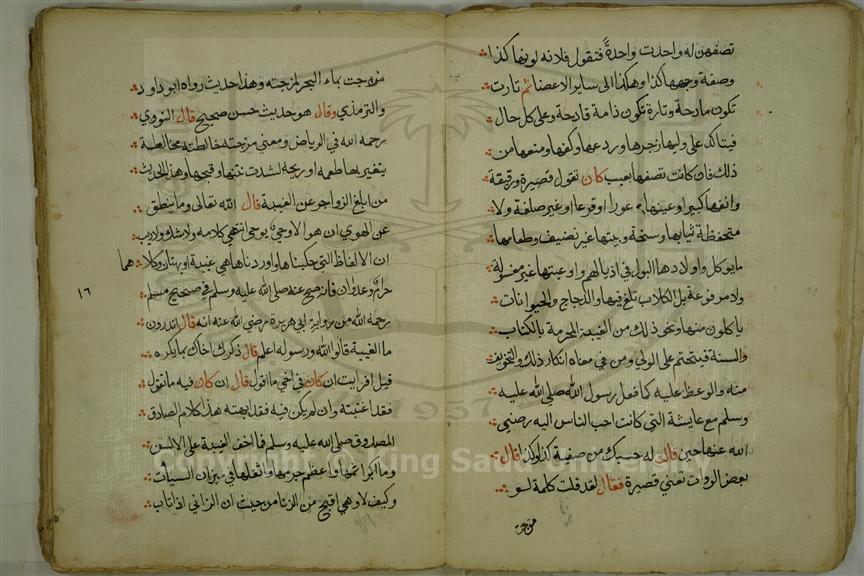 تصفهن له واحدت واحدةً فتقول فلانه لونها كذا
وصفة وجهها كذا وهكذا الى ساير الاعضا ثم تارت
تكون مادحة وتارة تكون ذامة قادحة وعلى كل حال
فيتاكد على وليها زجرها وردعها وكفها ومنعها من
ذلك فان كانت تصفها بعيب كان تقول قصيرة ورقيقة
وانفها كبير او عينها عورا او قرعا او غير صلفة ولا
متحفظة ثيابها وسخة وبيتها غير نضيف وطعامها
ما يوكل واولادها البول في اذيالهم واوعيتها غير مغسولة
ولا مرفوعة بل الكلاب تلغ فيها والدجاج والحيوانات
ياكلون منها ونحو ذلك من الغيبة المحرمة بالكتاب
والسنة فيتحتم على الولي ومن في معناه انكار ذلك والتخويف
منه والوعظ عليه كما فعل رسول الله صلى الله عليه
وسلم مع عايشة التي كانت احب الناس اليه رضي
الله عنها حين قالت له حسبك من صفية كذا وكذا قال
بعض الروات تعني قصيرة فقال لقد قلت كلمة لو
مزجت
مزجت بماء البحر لمزجته وهذا حديث رواه ابو داود
والترمذي وقال هو حديث حسن صحيح قال النووي
رحمه الله في الرياض ومعني مزجته خالطته مخالطة
يتغير بها طعمه او ريحه لشدت نتنها وقبحها وهذا الحديث
من ابلغ الزواجر عن الغيبة قال الله تعالى وما ينطق
عن الهوي ان هو الا وحي يوحى انتهى كلامه ولا شك ولا ريب
ان الالفاظ التي حكيناها واوردناها هي غيبة او بهتان وكلاهما
حرام وعدوان فانه صح عنه صلى الله عليه وسلم في صحيح مسلم
١٦
رحمه الله من رواية ابي هريرة رضي الله عنه انه قال اتدرون
ما الغيبة قالوا الله ورسوله اعلم قال ذكرك اخاك بما يكره
قيل افرايت ان كان في اخي ما اقول قال ان كان فيه ما تقول
فقد اغتبته وان لم يكن فيه فقد بهته هذا كلام الصادق
المصدوق صلى الله عليه وسلم فما اخف الغيبة على الالسن
وما اكبر اثمها واعظم جرمها واثقلها في ميزان السيات
وكيف لا وهي اقبح من الزنا من حيث ان الزاني اذا تاب
Copyright © King Saud University
1957